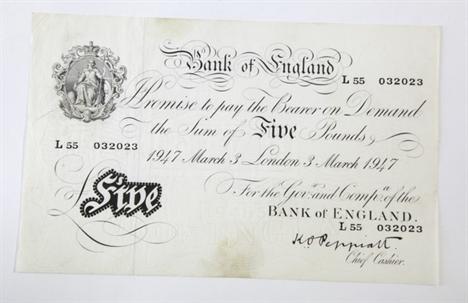 Bank of England
L 55 032023
Promise to pay the Bearer on Demand
the Sum of Five Pounds
L 55 032023
1947 March 3 London 3 March 1947
For the Govr. and Compa. of the
BANK OF ENGLAND.
L 55 032023
£Five
K O Peppiatt
Chief Cashier.